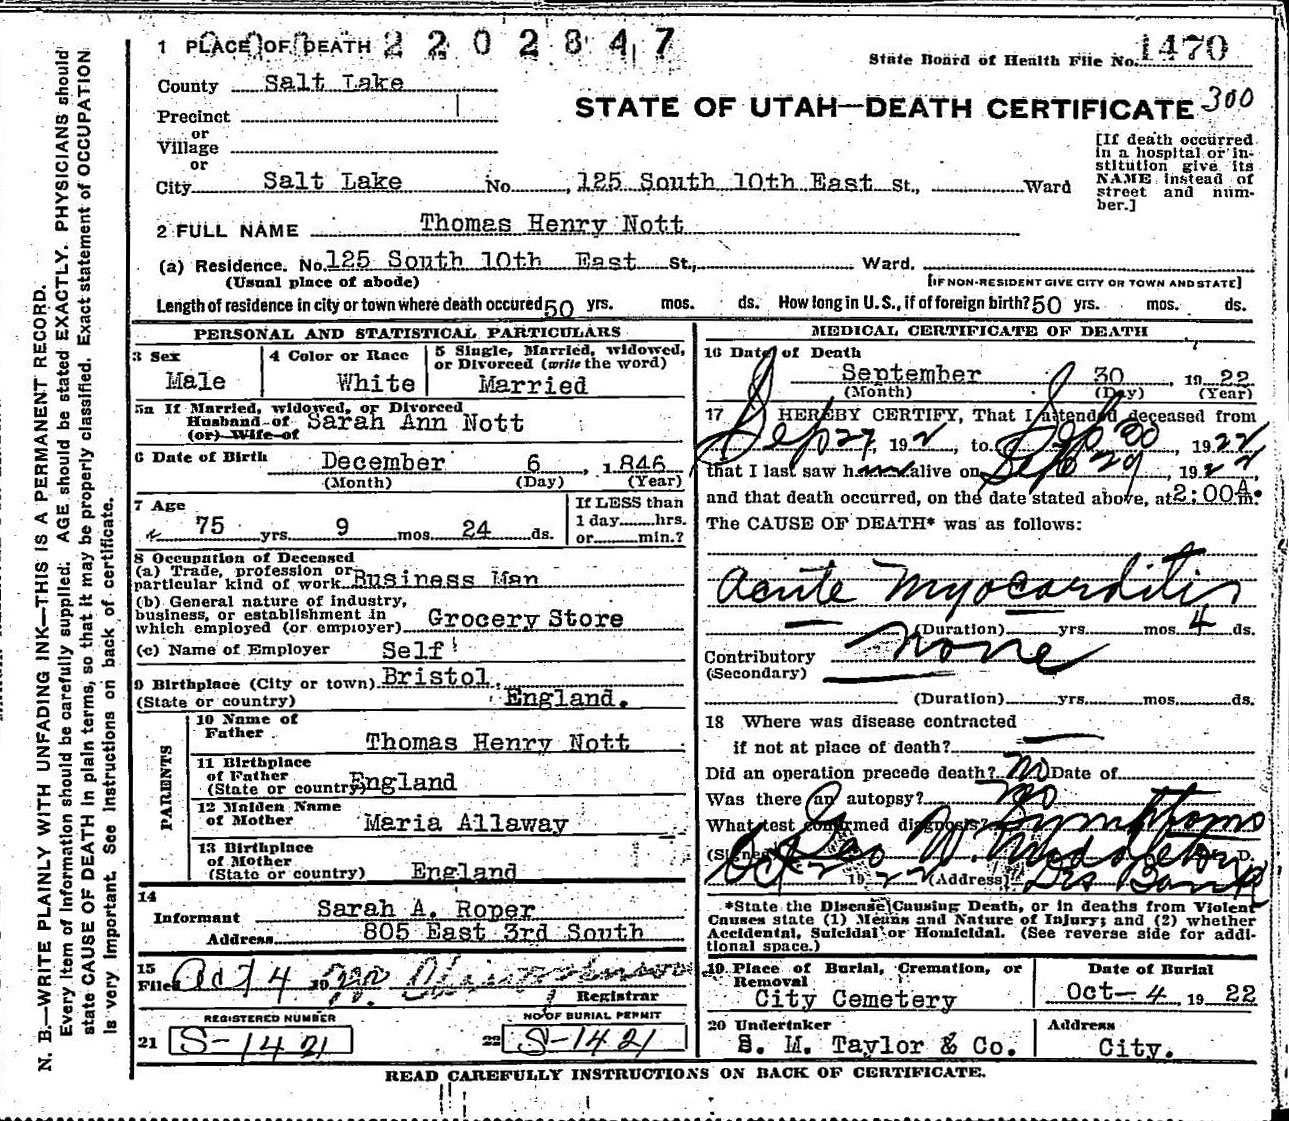 1 PLACE OF DEATH 2202847
State Board of Health File No. 1470
County Salt Lake
STATE OF UTAH—DEATH CERTIFICATE 300
Precinct
or
Village
or
City Salt Lake No. 125 South 10th East St., Ward
[If death occurred
in a hospital or in-
stitution give its
NAME instead of
street and num-
ber.]
2 FULL NAME Thomas Henry Nott
(a) Residence. No. 125 South 10th East St., Ward.
(Usual place of abode)
[IF NON-RESIDENT GIVE CITY OR TOWN AND STATE]
Length of residence in city or town where death occured 50 yrs. mos. ds. How long in U.S., if of foreign birth? 50 yrs. mos. ds.
PERSONAL AND STATISTICAL PARTICULARS
3 Sex
Male
4 Color or Race
White
5 Single, Married, widowed,
or Divorced (write the word)
Married
5a If Married, widowed, or Divorced
Husband of Sarah Ann Nott
(or) Wife of
6 Date of Birth December 6, 1846
(Month) (Day) (Year)
7 Age
75 yrs. 9 mos. 24 ds.
If LESS than
1 day hrs.
or min.?
8 Occupation of Deceased
(a) Trade, profession or
particular kind of work Business Man
(b) General nature of industry,
business, or establishment in
which employed (or employer) Grocery Store
(c) Name of Employer Self
9 Birthplace (City or town) Bristol,
(State or country) England.
PARENTS
10 Name of
Father Thomas Henry Nott
11 Birthplace
of Father
(State or country) England
12 Maiden Name
of Mother Maria Allaway
13 Birthplace
of Mother
(State or country) England
14
Informant Sarah A. Roper
Address 805 East 3rd South
15
Filed Oct 4 19
Registrar
REGISTERED NUMBER
21 S-1421
NO OF BURIAL PERMIT
22 S-1421
MEDICAL CERTIFICATE OF DEATH
16 Date of Death
September 30, 1922
(Month) (Day) (Year)
17 I HEREBY CERTIFY, That I attended deceased from
Sep 27, 192 to Sep 30 1922
that I last saw him alive on Sep 29, 1922,
and that death occurred, on the date stated above, at 2:00A.m.
The CAUSE OF DEATH* was as follows:
Acute Myocarditis
(Duration) yrs. mos. 4 ds.
Contributory None
(Secondary)
(Duration) yrs. mos. ds.
18 Where was disease contracted
if not at place of death?
Did an operation precede death? No Date of
Was there an autopsy? No
What test confirmed diagnosis? Symptoms
(Signed) Geo W. Middleton M. D.
Oct 2 1922 (Address) Des Bank
*State the Disease Causing Death, or in deaths from Violent
Causes state (1) Means and Nature of Injury; and (2) whether
Accidental, Suicidal or Homicidal. (See reverse side for addi-
tional space.)
19 Place of Burial, Cremation, or
Removal
City Cemetery
Date of Burial
Oct-4, 1922
20 Undertaker
S. M. Taylor & Co.
Address
City.
READ CAREFULLY INSTRUCTIONS ON BACK OF CERTIFICATE.
N. B.—WRITE PLAINLY WITH UNFADING INK—THIS IS A PERMANENT RECORD.
Every item of information should be carefully supplied. AGE should be stated EXACTLY. PHYSICIANS should
state CAUSE OF DEATH in plain terms, so that it may be properly classified. Exact statement of OCCUPATION
is very important. See instructions on back of certificate.